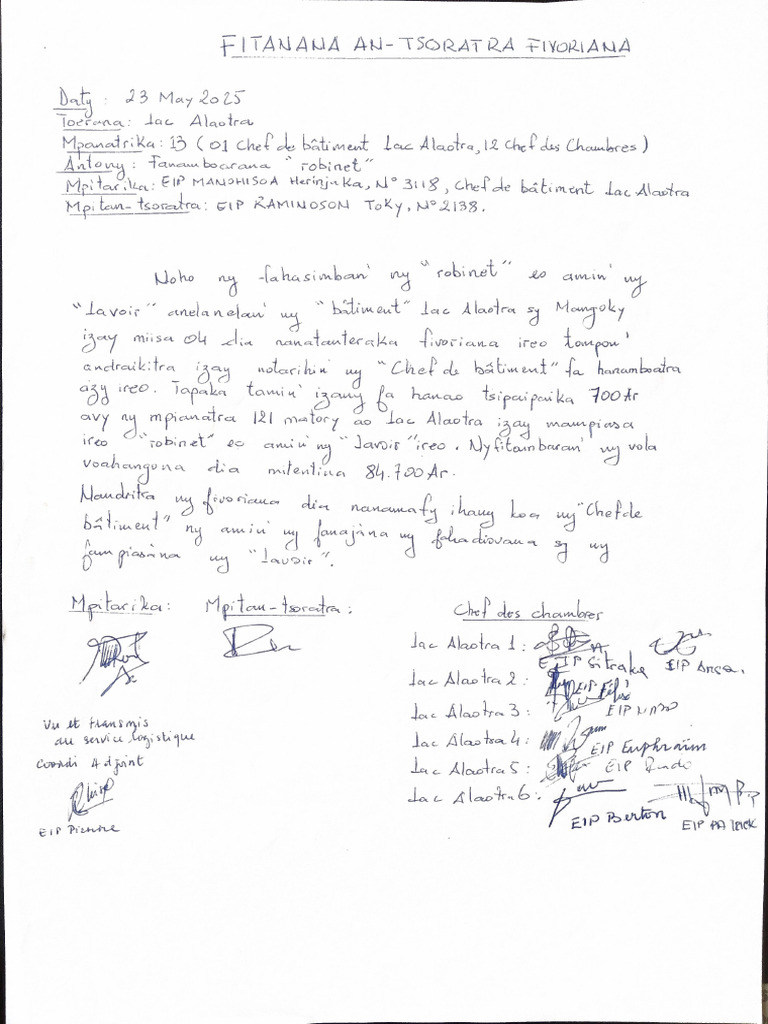 FITANANA AN-TSORATRA FIVORIANA
Daty : 23 May 2025
Toerana : Lac Alaotra
Mpanatrika : 13 ( 01 Chef de bâtiment Lac Alaotra, 12 Chef des Chambres )
Antony : Fanamboarana "robinet"
Mpitarika : EIP MANOHISOA Herinjaka, N° 3118, Chef de bâtiment Lac Alaotra
Mpitan-tsoratra : EIP RAMINOSON Toky, N° 2138.
Noho ny fahasimban' ny "robinet" eo amin' ny
"Lavoir" anelanelan' ny "bâtiment" Lac Alaotra sy Mangoky
izay miisa 04 dia nanatanteraka fivoriana ireo tompon'
andraikitra izay notarihin' ny "Chef de bâtiment" fa hanamboatra
azy ireo. Tapaka tamin' izany fa hanao tsipaipaika 700 Ar
avy ny mpianatra 121 matory ao Lac Alaotra izay mampiasa
ireo "robinet" eo amin' ny "Lavoir" ireo. Ny fitambaran' ny vola
voahangona dia mitentina 84.700 Ar.
Mandritra ny fivoriana dia nanamafy ihany koa ny "Chef de
bâtiment" ny amin' ny fanajàna ny fahadiovana sy ny
fampiasàna ny "Lavoir".
Mpitarika : Mpitan-tsoratra : Chef des chambres
Lac Alaotra 1 :
EIP Sitraka EIP
Lac Alaotra 2 :
EIP
Lac Alaotra 3 :
EIP
Lac Alaotra 4 :
EIP Euphraïm
Lac Alaotra 5 :
EIP
Lac Alaotra 6 :
EIP Berton EIP PATRICK
Vu et transmis
au service logistique
Coordi Adjoint
EIP